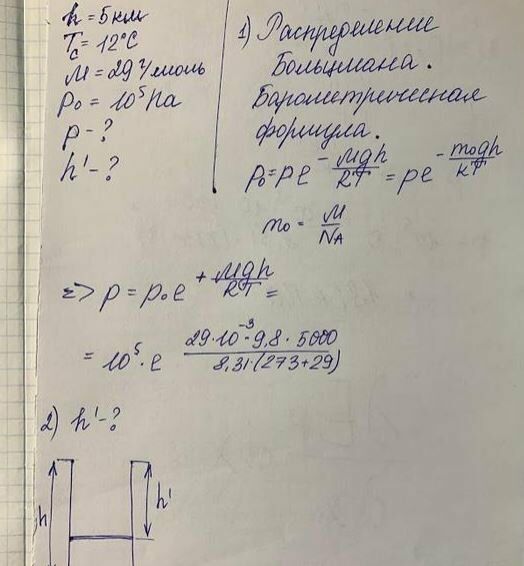 h = 5км
Tc = 12°C
M = 29 г/моль
p₀ = 10⁵ Па
p - ?
h' - ?
1) Распределение
Больцмана.
Барометрическая
формула.
p₀ = pe^(-Mgh/RT) = pe^(-m₀gh/kT)
m₀ = M/N_A
=> p = p₀e^(+Mgh/RT) =
= 10⁵·e^(29·10⁻³·9,8·5000/8,31·(273+29))
2) h' - ?
h
h'